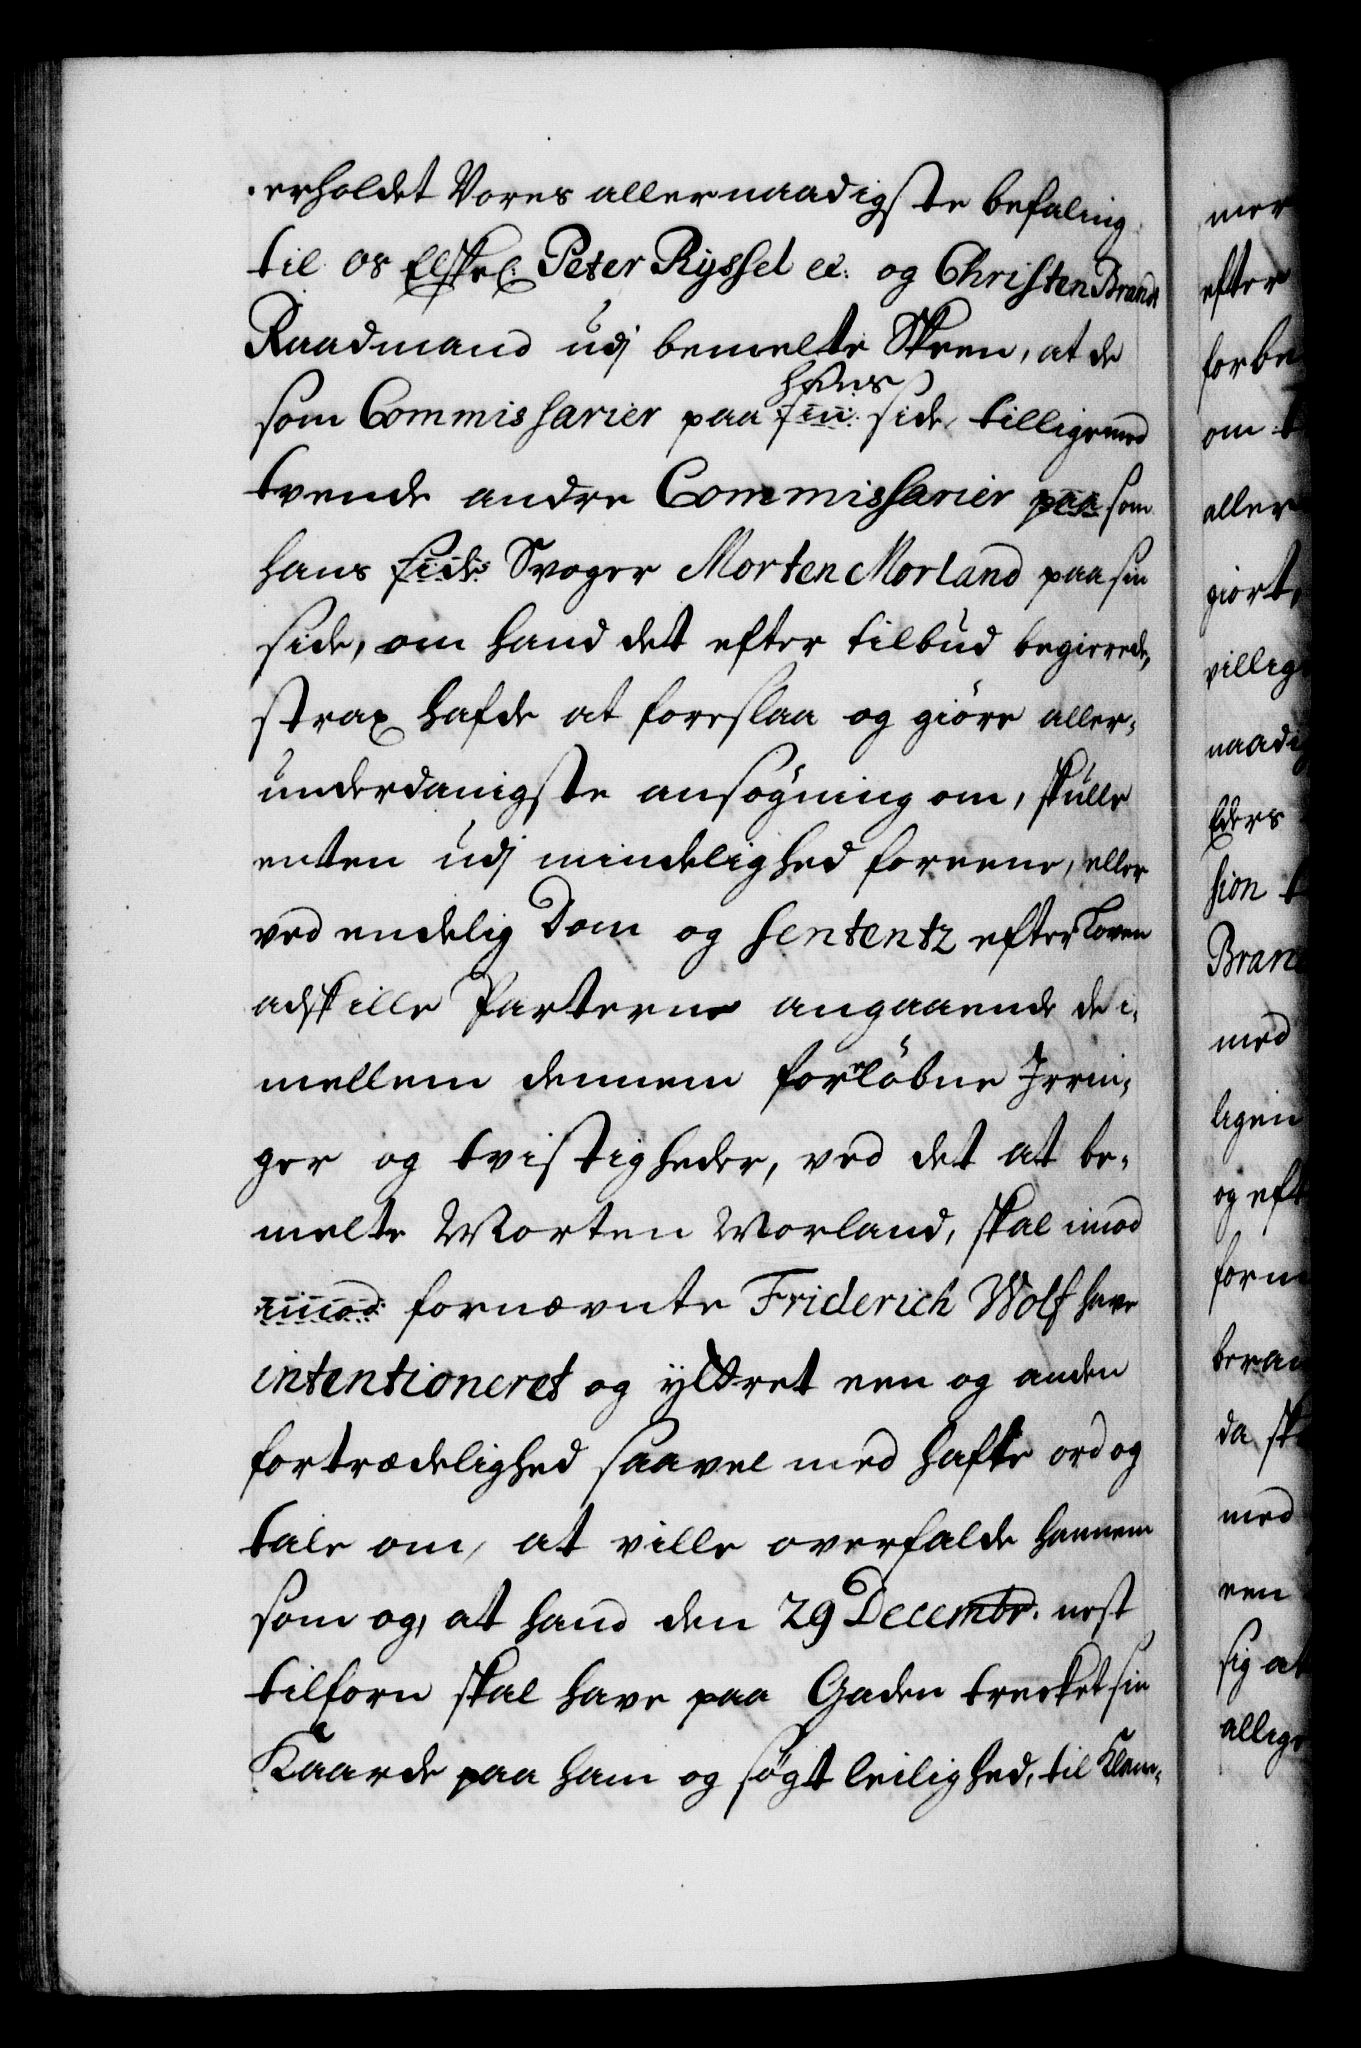 erholdet Vores allernaadigste befaling
til os Elskel: Peter Ryssel etc: og Christen Brandt
Raadmand udj bemelte Skeen, at de
som Commissarier paa sin hans side tilligemed
tvende andre Commissarier paa som
hans side Svoger Morten Morland paa sin
side, om hand det efter tilbud begierede,
strax hafde at foreslaa og giöre aller-
underdanigste ansögning om, skulle
enten udj mindelighed foreene, eller
ved endelig Dom og Sententz efter Loven
adskille Parterne angaaende de i-
mellem dennem forelöbne Irrin-
ger og tvistigheder, ved det at be-
melte Morten Morland, skal imod
imod fornævnte Friderich Wolf have
intentioneret og yttret een og anden
fortrædelighed saavel med hafte ord og
tale om, at ville overfalde hannem
som og, at hand den 29 Decembr. nest
tilforn skal have paa Gaden trecket sin
Kaarde paa ham og søgt leilighed, til Klam-
mer
efter
forbe
om t
aller
giort,
villig
naadig
Eders
sion t
Bran
med
ligen
og eft
forn
beram
da sk
med
een
sig at
allige